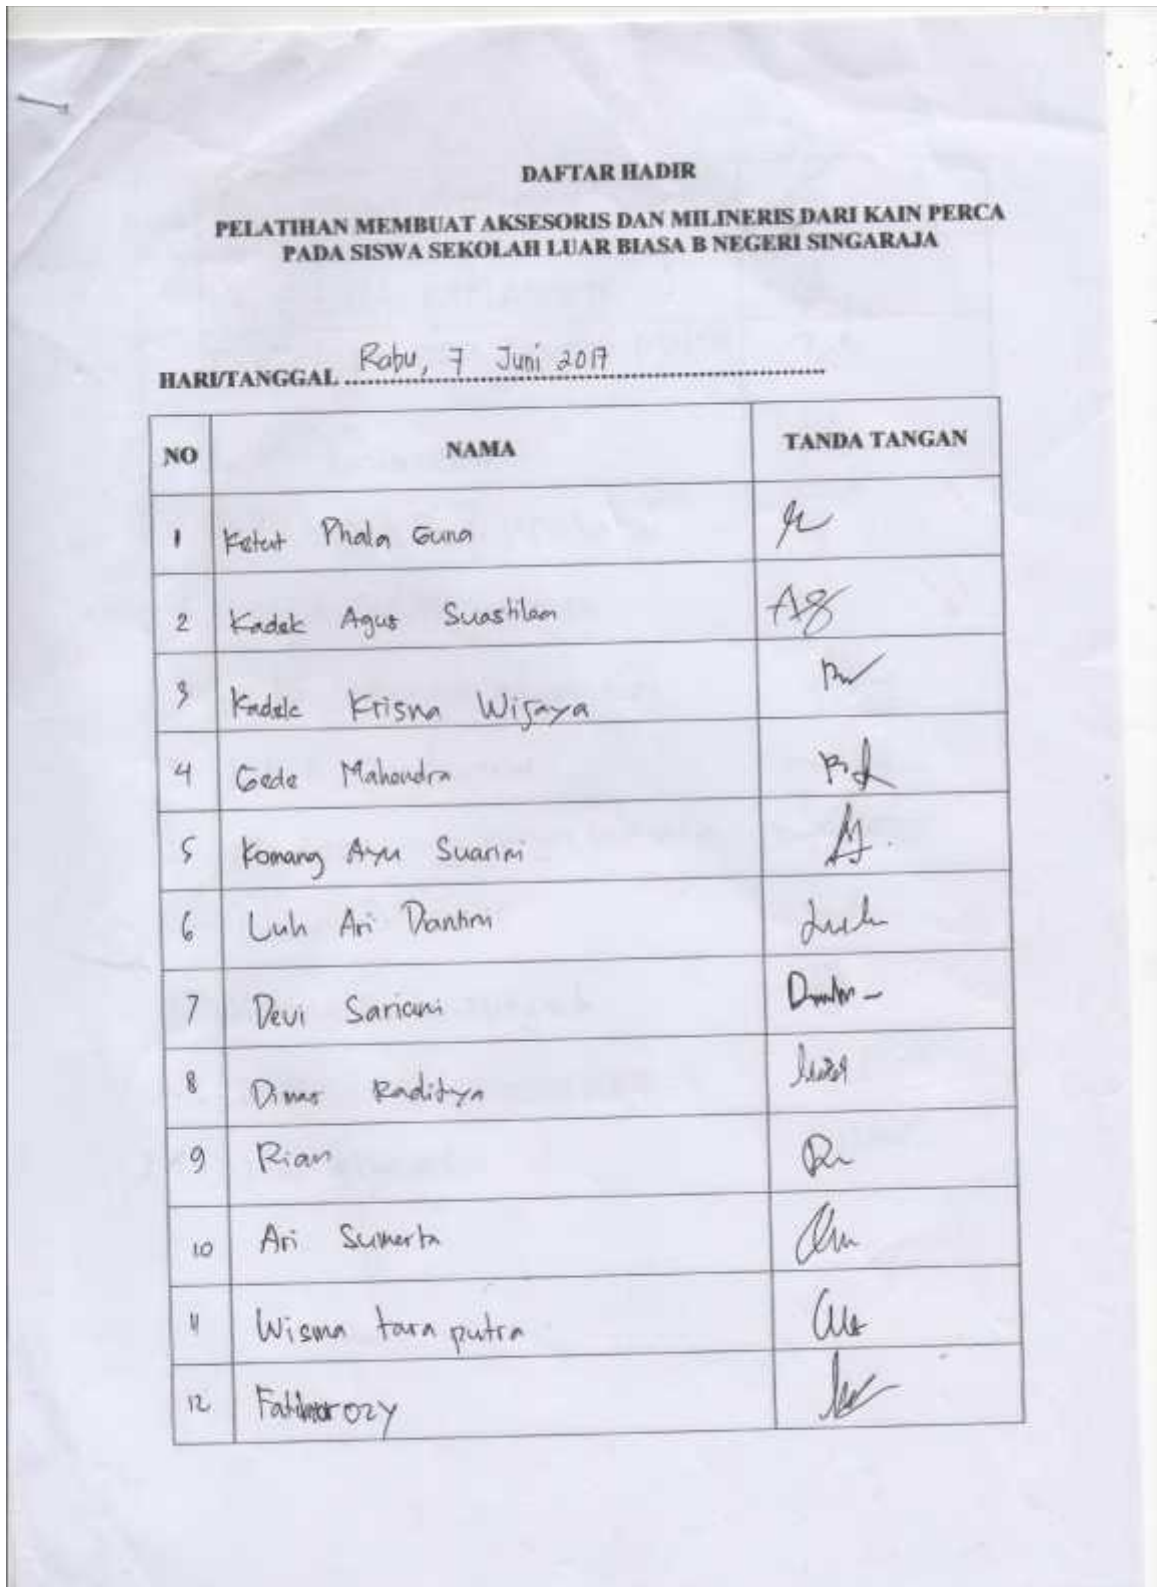 DAFTAR HADIR
PELATIHAN MEMBUAT AKSESORIS DAN MILINERIS DARI KAIN PERCA
PADA SISWA SEKOLAH LUAR BIASA B NEGERI SINGARAJA
HARI/TANGGAL Rabu, 7 Juni 2017
NO NAMA TANDA TANGAN
1 Ketut Phala Guna
2 Kadek Agus
3 Kadek Krisna Wijaya
4 Gede Mahendra
5 Komang Ayu Suarini
6 Luh Ari Dantini
7 Devi Sariani
8 Dimas Raditya
9 Rian
10 Ari Sumerta
11 Wisma tara putra
12